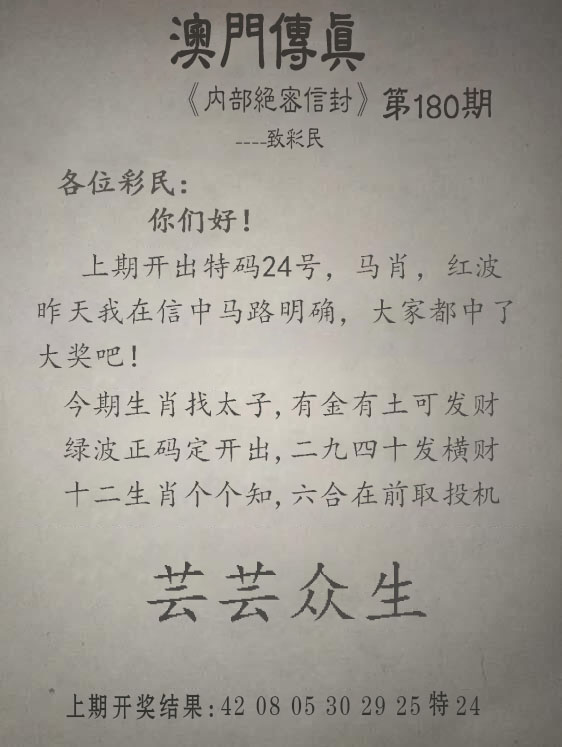 澳門傳真
《内部絕密信封》第180期
----致彩民
各位彩民:
你们好!
上期开出特码24号,马肖,红波
昨天我在信中马路明确,大家都中了
大奖吧!
今期生肖找太子,有金有土可发财
绿波正码定开出,二九四十发横财
十二生肖个个知,六合在前取投机
芸芸众生
上期开奖结果:42 08 05 30 29 25 特 24